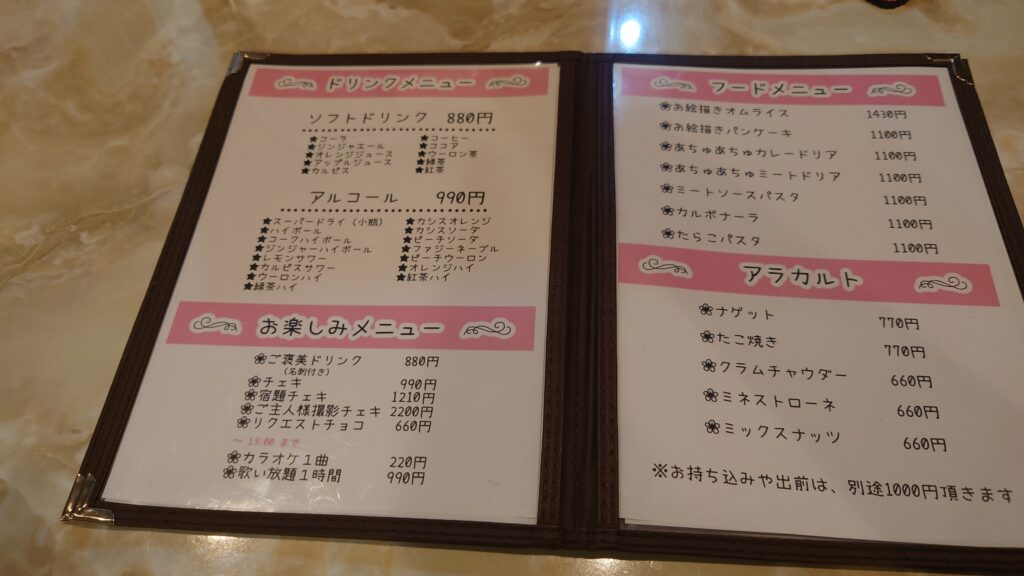 ドリンクメニュー
ソフトドリンク 880円
★コーラ ★コーヒー
★ジンジャエール ★ココア
★オレンジジュース ★ウーロン茶
★アップルジュース ★緑茶
★カルピス ★紅茶
アルコール 990円
★スーパードライ(小瓶) ★カシスオレンジ
★ハイボール ★カシスソーダ
★コークハイボール ★ピーチソーダ
★ジンジャーハイボール ★ファジーネーブル
★レモンサワー ★ピーチウーロン
★カルピスサワー ★オレンジハイ
★ウーロンハイ ★紅茶ハイ
★緑茶ハイ
お楽しみメニュー
❀ご褒美ドリンク 880円
(名刺付き)
❀チェキ 990円
❀宿題チェキ 1210円
❀ご主人様撮影チェキ 2200円
❀リクエストチョコ 660円
～ 19:00 まで
❀カラオケ1曲 220円
❀歌い放題1時間 990円
フードメニュー
❀お絵描きオムライス 1430円
❀お絵描きパンケーキ 1100円
❀あちゅあちゅカレードリア 1100円
❀あちゅあちゅミートドリア 1100円
❀ミートソースパスタ 1100円
❀カルボナーラ 1100円
❀たらこパスタ 1100円
アラカルト
❀ナゲット 770円
❀たこ焼き 770円
❀クラムチャウダー 660円
❀ミネストローネ 660円
❀ミックスナッツ 660円
※お持ち込みや出前は、別途1000円頂きます